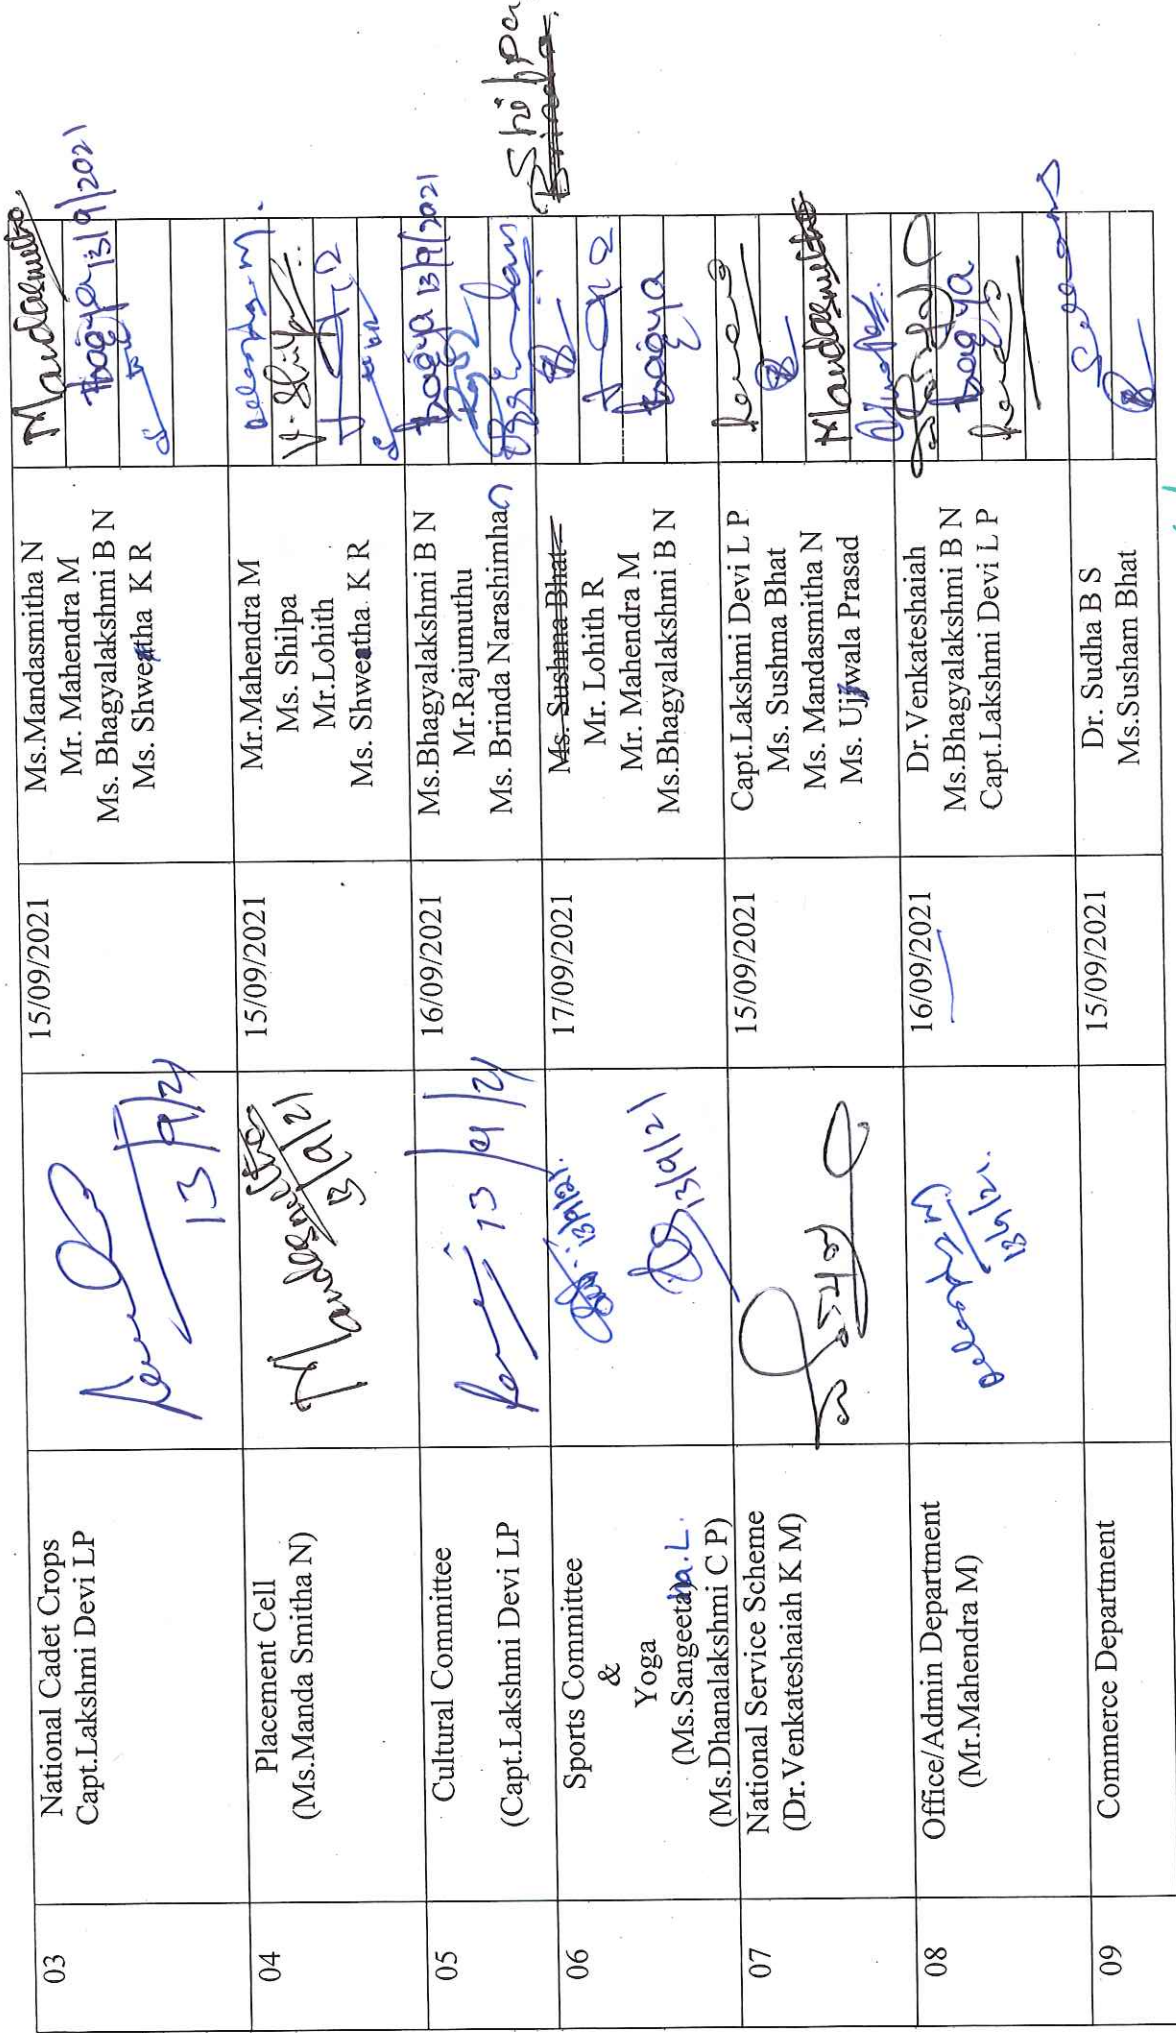 03
National Cadet Crops
Capt.Lakshmi Devi LP
13/9/21
15/09/2021
Ms.Mandasmitha N
Mr. Mahendra M
Ms. Bhagyalakshmi B N
Ms. Shwetha K R
Mandasmitha
Bhagya 13/9/2021
04
Placement Cell
(Ms.Manda Smitha N)
Mandasmitha
13/9/21
15/09/2021
Mr.Mahendra M
Ms. Shilpa
Mr.Lohith
Ms. Shwetha K R
V. Shilpa
05
Cultural Committee
(Capt.Lakshmi Devi LP
13/9/21
16/09/2021
Ms.Bhagyalakshmi B N
Mr.Rajumuthu
Ms. Brinda Narashimhan
Bhagya 13/9/2021
Shilpa
Brinda
06
Sports Committee
&
Yoga
(Ms.Sangeetha.L.
(Ms.Dhanalakshmi C P)
13/9/21.
13/9/21
17/09/2021
Ms. Sushma Bhat
Mr. Lohith R
Mr. Mahendra M
Ms.Bhagyalakshmi B N
Bhagya
07
National Service Scheme
(Dr.Venkateshaiah K M)
15/09/2021
Capt.Lakshmi Devi L P
Ms. Sushma Bhat
Ms. Mandasmitha N
Ms. Ujjwala Prasad
Mandasmitha
08
Office/Admin Department
(Mr.Mahendra M)
13/9/21.
16/09/2021
Dr.Venkateshaiah
Ms.Bhagyalakshmi B N
Capt.Lakshmi Devi L P
Bhagya
09
Commerce Department
15/09/2021
Dr. Sudha B S
Ms.Susham Bhat